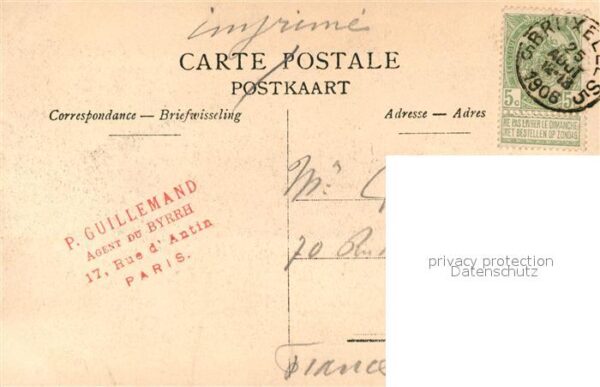 imprimé
CARTE POSTALE
POSTKAART
Correspondance — Briefwisseling
Adresse — Adres
BRUXELLES 5
25
AOUT
1906
5c 5c
NE PAS LIVRER LE DIMANCHE
NIET BESTELLEN OP ZONDAG
P. GUILLEMAND
AGENT DU BYRRH
17, Rue d'Antin
PARIS.
Mr
70 Rue
France
privacy protection
Datenschutz